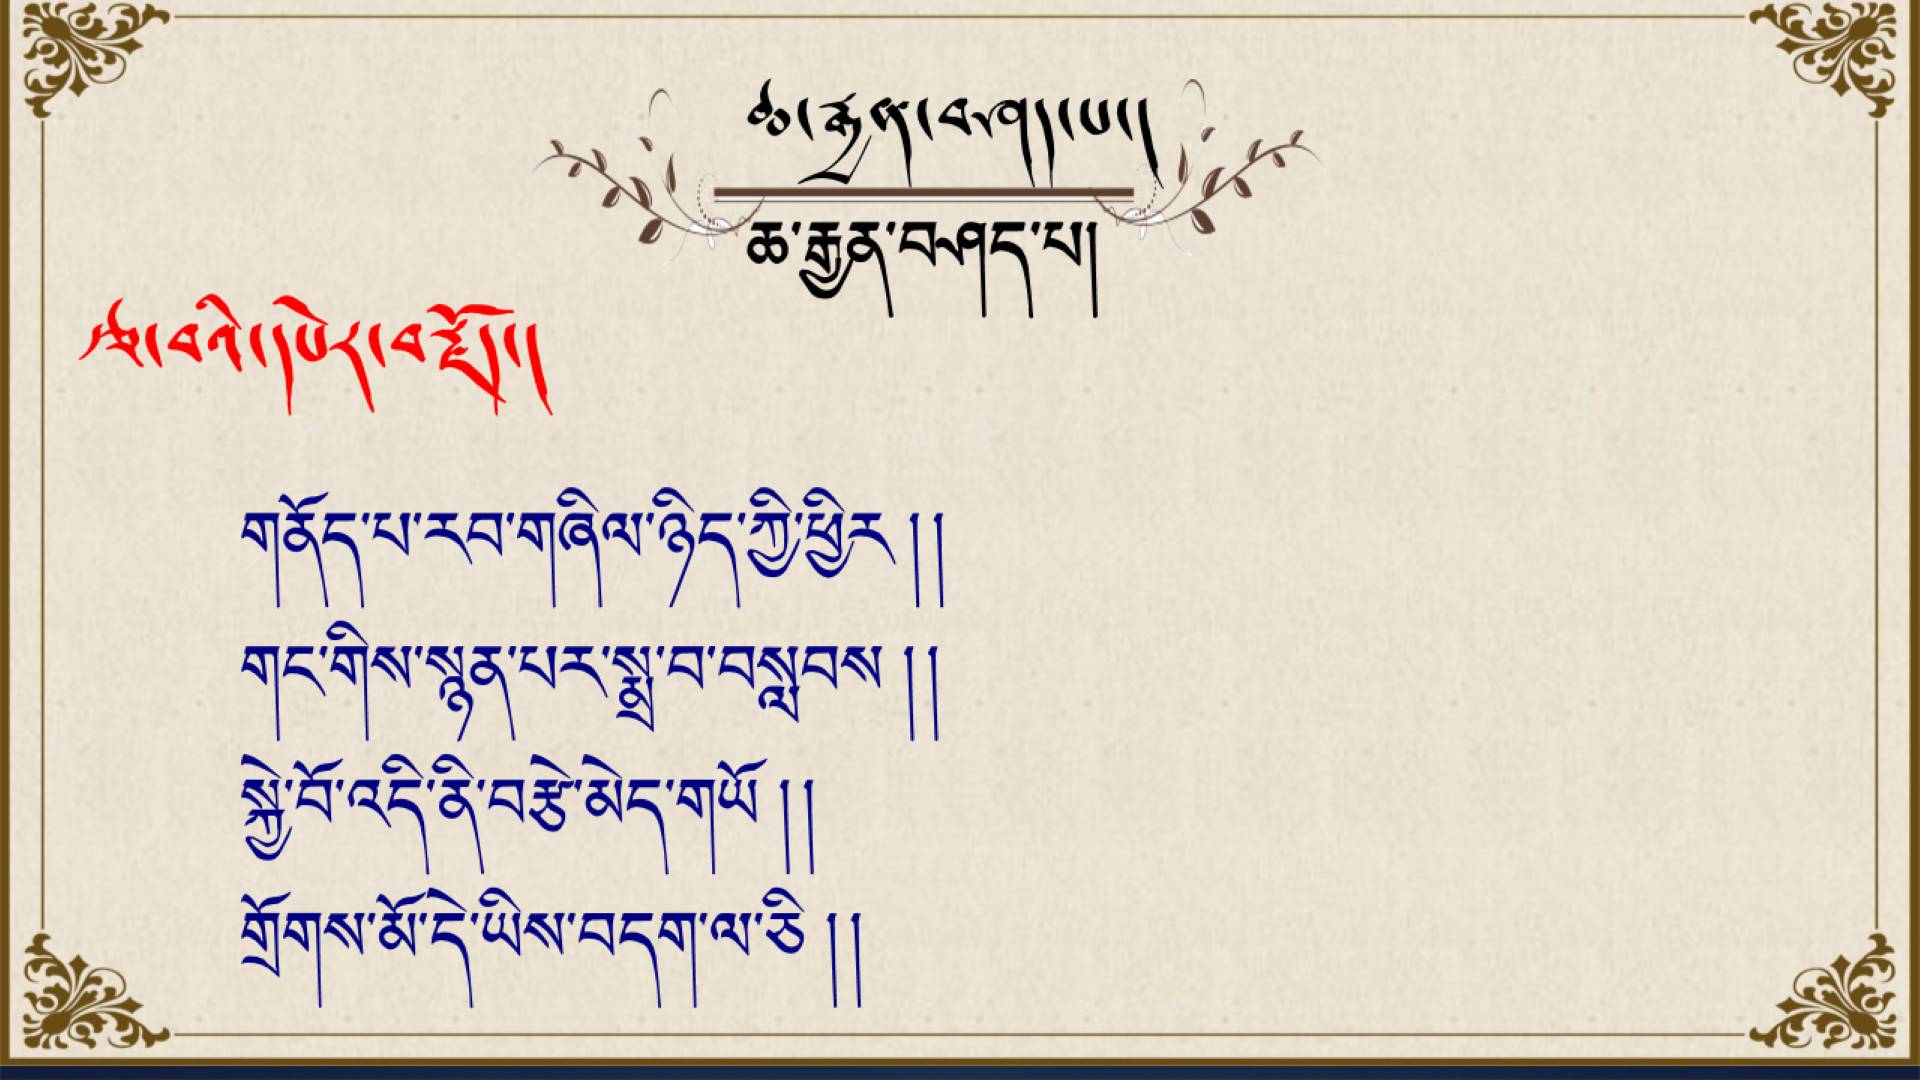 ཆ་རྐྱེན་བཤད་པ།
ཆ་རྒྱན་བཤད་པ།
དང་པོའི་དཔེར་བརྗོད།
གནོད་པ་རབ་གཞིལ་ཉིད་ཀྱི་ཕྱིར །།
གང་གིས་སྙན་པར་སྨྲ་བ་བསླབས །།
སྐྱེ་བོ་འདི་ནི་བརྩེ་མེད་གཡོ །།
གྲོགས་མོ་དེ་ཡིས་བདག་ལ་ཅི །།